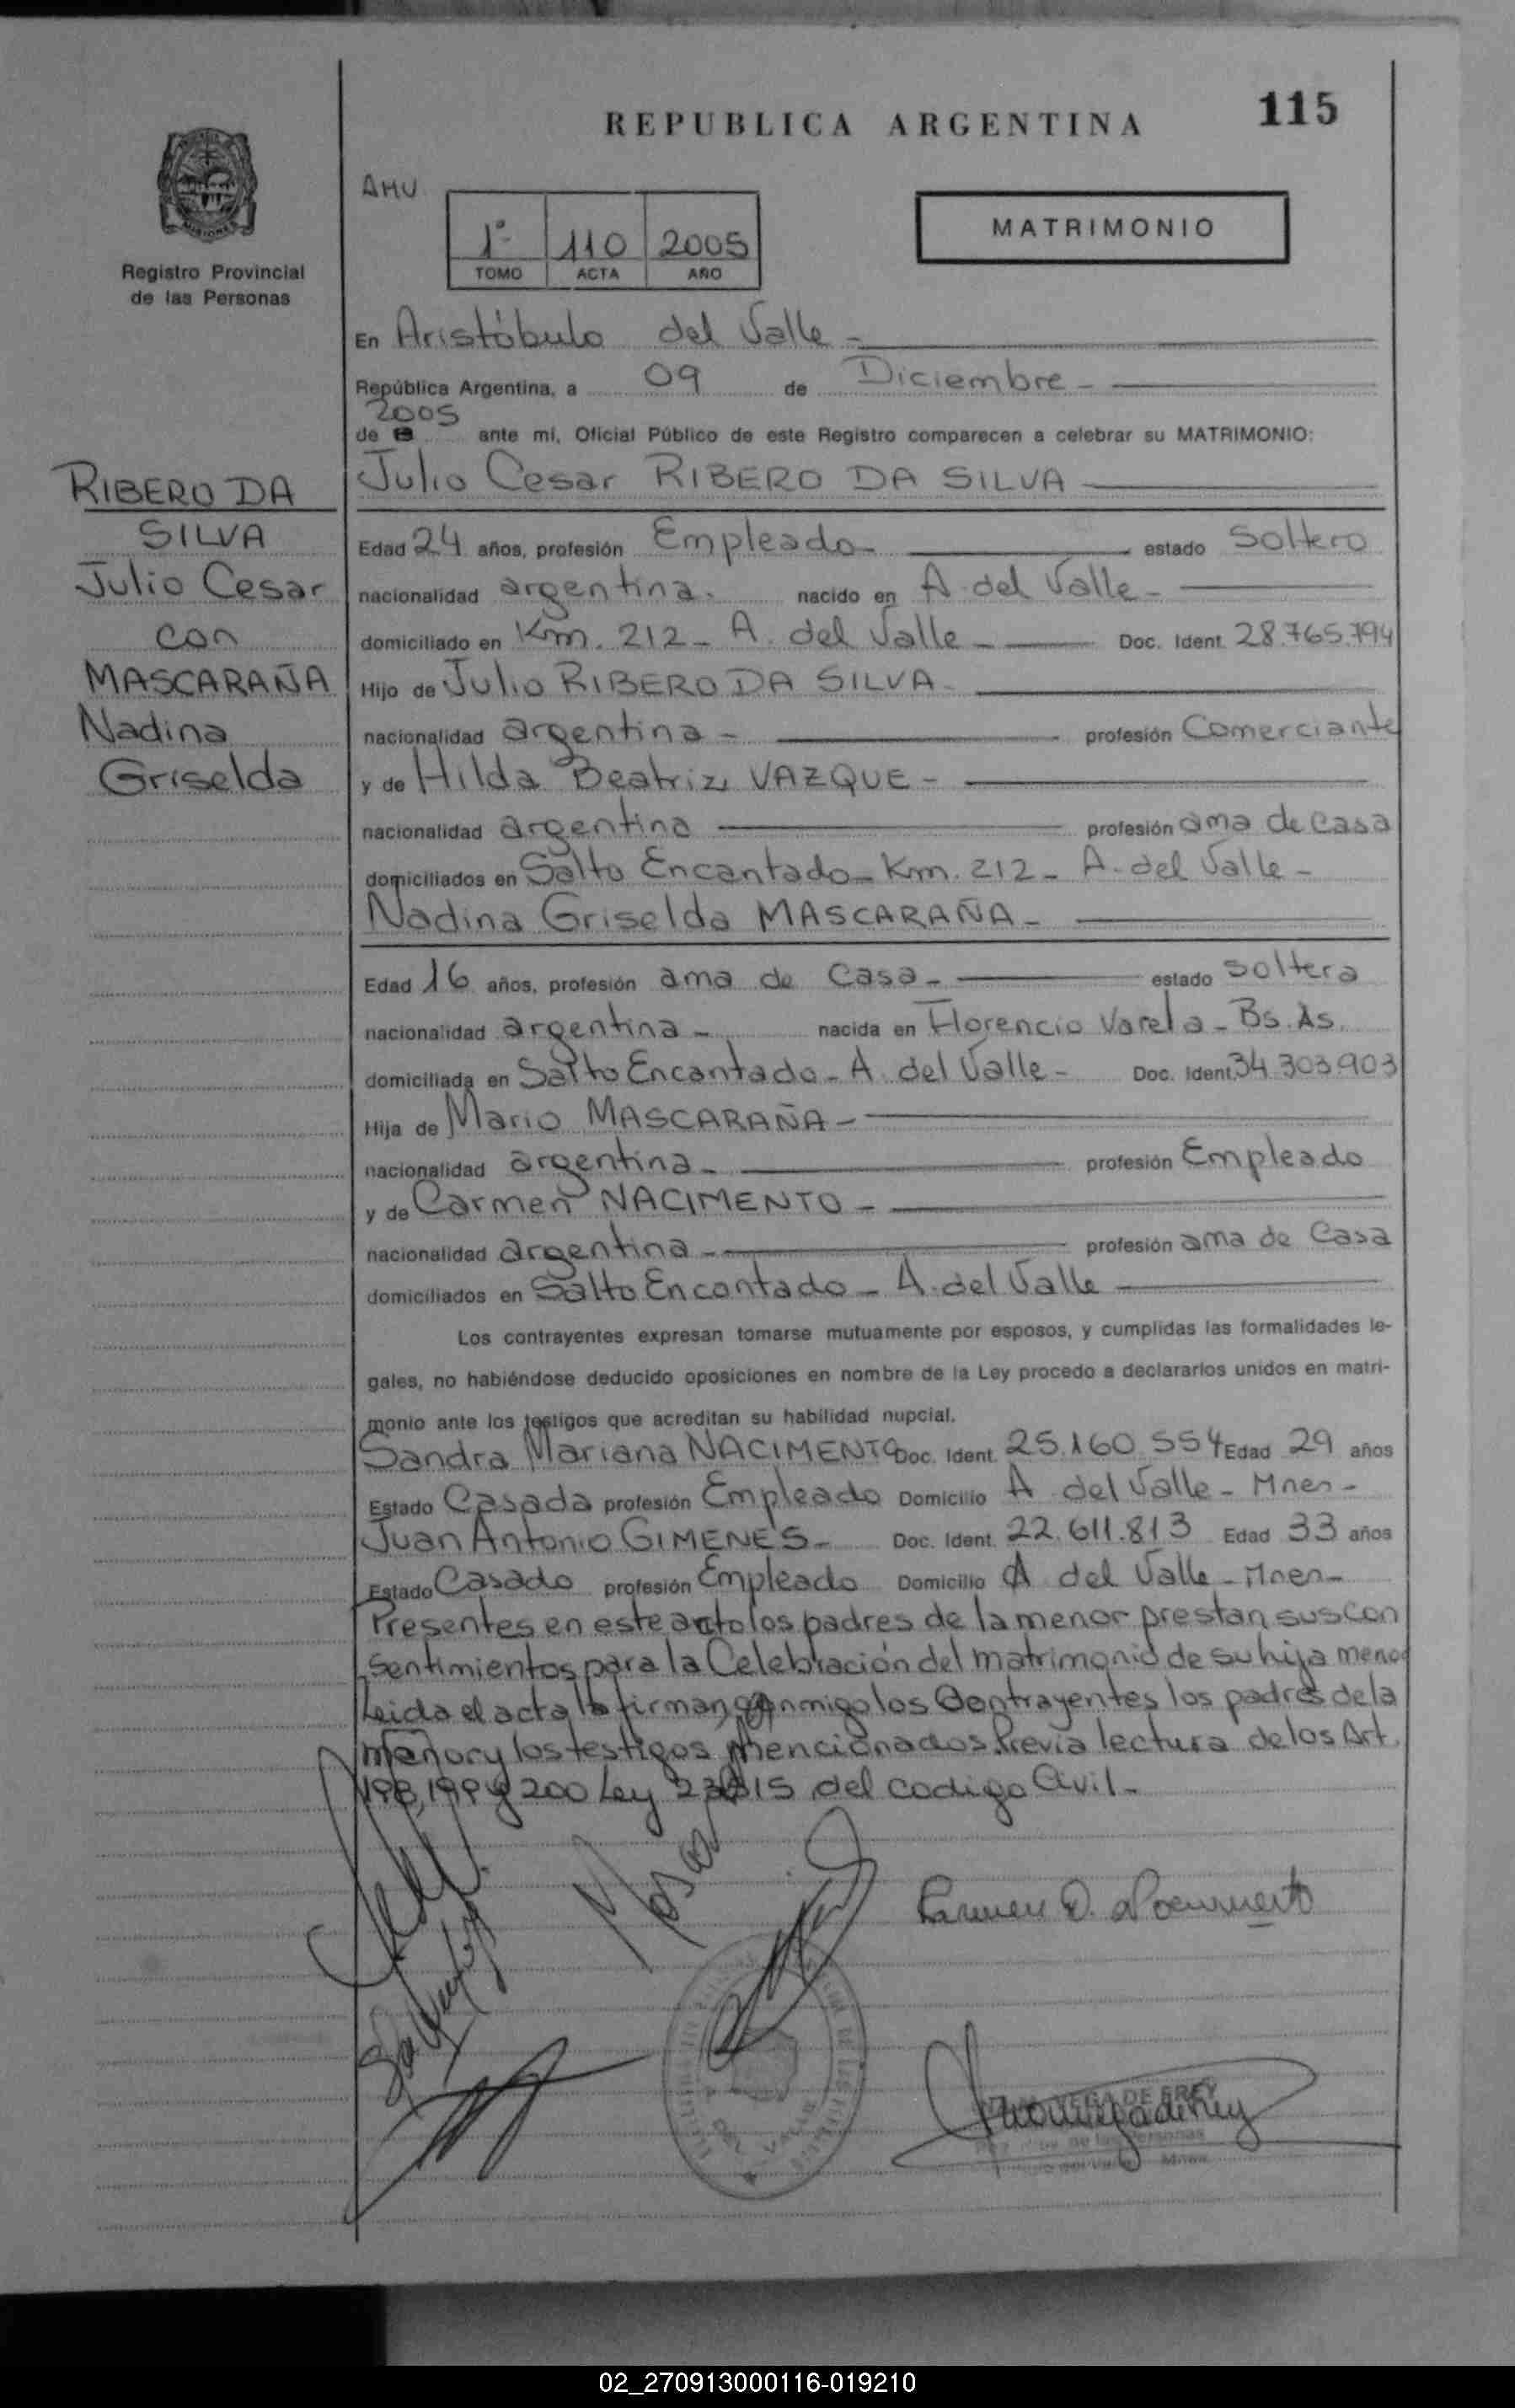 REPUBLICA ARGENTINA
115
Registro Provincial
de las Personas
AMU
1º 110 2005
TOMO ACTA AÑO
MATRIMONIO
En Aristóbulo del Valle -
República Argentina, a 09 de Diciembre -
2005
de ante mi, Oficial Público de este Registro comparecen a celebrar su MATRIMONIO:
RIBERO DA
SILVA
Julio Cesar
con
MASCARAÑA
Nadina
Griselda
Julio Cesar RIBERO DA SILVA
Edad 24 años, profesión Empleado - estado Soltero
nacionalidad argentina. nacido en A. del Valle -
domiciliado en Km. 212 - A. del Valle - Doc. Ident. 28.765.794
Hijo de Julio RIBERO DA SILVA -
nacionalidad argentina - profesión Comerciante
y de Hilda Beatriz VAZQUE -
nacionalidad argentina profesión ama de casa
domiciliados en Salto Encantado - Km. 212 - A. del Valle -
Nadina Griselda MASCARAÑA -
Edad 16 años, profesión ama de Casa - estado soltera
nacionalidad argentina - nacida en Florencio Varela - Bs. As.
domiciliada en Salto Encantado - A. del Valle - Doc. Ident. 34.303.903
Hija de Mario MASCARAÑA -
nacionalidad argentina - profesión Empleado
y de Carmen NACIMENTO -
nacionalidad argentina - profesión ama de Casa
domiciliados en Salto Encantado - A. del Valle
Los contrayentes expresan tomarse mutuamente por esposos, y cumplidas las formalidades le-
gales, no habiéndose deducido oposiciones en nombre de la Ley procedo a declararlos unidos en matri-
monio ante los testigos que acreditan su habilidad nupcial.
Sandra Mariana NACIMENTO Doc. Ident. 25.160.554 Edad 29 años
Estado Casada profesión Empleado Domicilio A. del Valle - Mnes -
Juan Antonio GIMENES - Doc. Ident. 22.611.813 Edad 33 años
Estado Casado profesión Empleado Domicilio A del Valle - Mnes -
Presentes en este acto los padres de la menor prestan sus con
sentimientos para la Celebración del matrimonio de su hija menor
Leida el acta la firman conmigo los Contrayentes los padres de la
menor y los testigos mencionados. Previa lectura de los Art.
198, 199 y 200 Ley 23515 del codigo Civil -
VEGA DE FREY
de las Personas
02_270913000116-019210